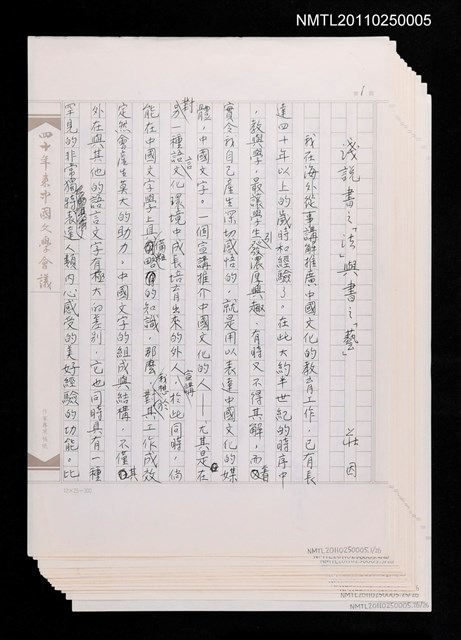 NMTL20110250005
1
淺說書之「法」與書之「藝」
莊因
我在海外從事講解推廣中國文化的教育工作，已有長
達四十年以上的歲時和經驗了。在此大約半世紀的時序中
，教與學，最讓學生引發濃厚興趣，有時又不得其解，而
實令我自己產生深切感悟的，就是用以表達中國文化的媒
體，中國文字。一個宣講推介中國文化的人——尤其是在
對另一種語言文化環境中成長培育出來的外人宣講，於此同時，倘
能在中國文字學上具備粗略的知識，那麼，我想於對其工作成效
定然會產生莫大的助力。中國文字的組成與結構，不僅其
外在與其他的語言文字有極大的差別，它也同時具有一種
罕見的非常獨特表達人類內心感受的美好經驗的功能。比
四十年來中國文學會議
NMTL20110250005.1/26
NMTL20110250005.26/26